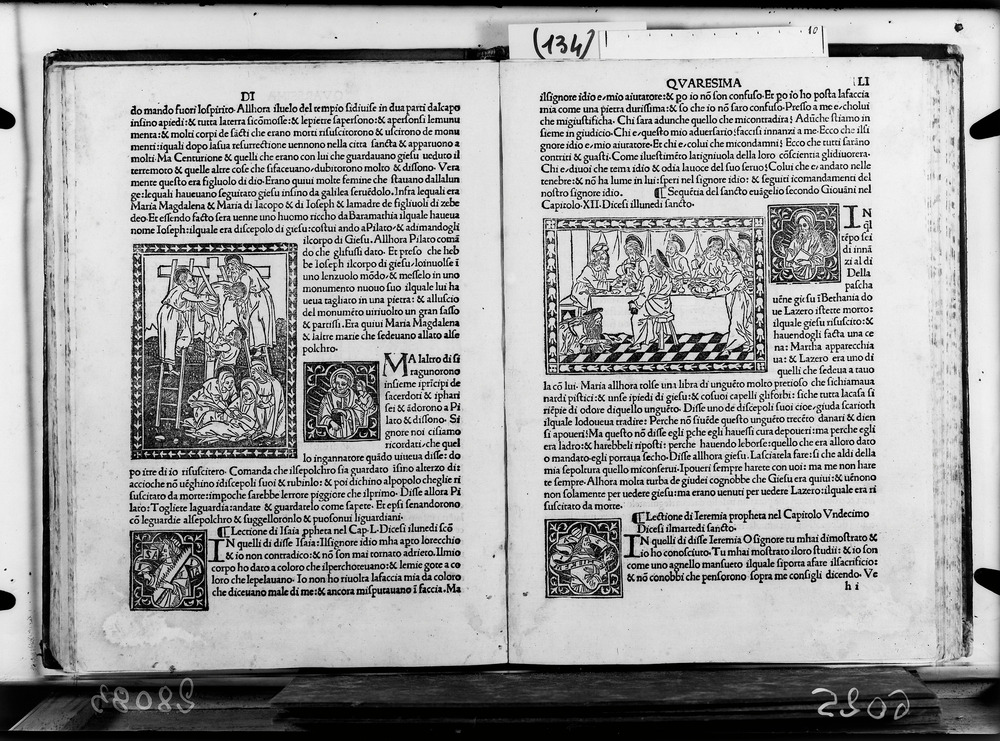 (134)
10
DI
do mando fuori lospirito. Allhora iluelo del tempio sidiuise in dua parti dalcapo
insino apiedi: & tutta laterra sicõmosse: & lepietre sapersono: & apersonsi lemonu
menta: & molti corpi de sãcti che erano morti risuscitorono & uscirono de monu
menti: iquali dopo lasua resurrectione uennono nella citta sancta & apparuono a
molti. Ma Centurione & quelli che erano con lui che guardauano giesu ueduto il
terremoto & quelle altre cose che sifaceuano / dubitorono molto & dissono. Vera
mente questo era figluolo di dio. Erano quiui molte femine che stauano dallalun
ge: lequali haueuano seguitato giesu insino da galilea seruẽdolo. Infra lequali era
Maria Magdalena & Maria di Iacopo & di Ioseph & lamadre de figliuoli di zebe
deo. Et essendo facto sera uenne uno huomo riccho da Baramathia ilquale haueua
nome Ioseph: ilquale era discepolo di giesu: costui ando a Pilato / & adimandogli
ilcorpo di Giesu. Allhora Pilato comã
do che glifussi dato. Et preso che heb
be Ioseph ilcorpo di giesu / loinuolse ĩ
uno lenzuolo mõdo / & messelo in uno
monumento nuouo suo ilquale lui ha
ueua tagliato in una pietra: & alluscio
del monumẽto uiriuolto un gran sasso
& partissi. Era quiui Maria Magdalena
& laltre marie che sedeuano allato alse
polchro.
MA laltro di si
ragunorono
insieme ipricipi de
sacerdoti & ipharì
sei & adorono a Pi
lato & dissono. Si
gnore noi cisiamo
ricordati / che quel
lo ingannatore quãdo uiueua disse: do
po itre di io risuscitero. Comanda che ilsepolchro sia guardato ĩsino alterzo di:
accioche nõ uẽghino idiscepoli suoi & rubinlo: & poi dichino alpopolo cheglie ri
suscitato da morte: impoche sarebbe lerrore piggiore che ilprimo. Disse allora Pi
lato: Togliete laguardia: andate & guardatelo come sapete. Et epsi senandorono
cõ leguardie alsepolchro & suggelloronlo & puosonui liguardiani.
¶ Lectione di Isaia ppheta nel Cap. L. Dicesi ilunedi scõ
IN quelli di disse Isaia: Ilsignore idio mha apto lorecchio
& io non contradico: & nõ son mai tornato adrieto. Ilmio
corpo ho dato a coloro che ilperchoteuano: & lemie gote a co
loro che lepelauano. Io non ho riuolta lafaccia mia da coloro
che diceuano male di me: & ancora misputauano ĩ faccia. Ma
QVARESIMA
LI
ilsignore idio e / mio aiutatore: & po io nõ son confuso. Et po io ho posta lafaccia
mia come una pietra durissima: & so che io nõ saro confuso. Presso a me e / cholui
che migiustificha. Chi sara adunche quello che micontradira? Adũche stiamo in
sieme in giudicio. Chi e / questo mio aduersario? faccisi innanzi a me. Ecco che ilsi
gnore idio e / mio aiutatore. Et chi e / colui che micondamni? Ecco che tutti sarãno
contriti & guasti. Come iluestimẽto latigniuola della loro cõscientia glidiuorera.
Chi e / diuoi che tema idio & odia lauoce del suo seruo? Colui che e / andato nelle
tenebre: & nõ ha lume in lui: speri nel signore idio: & seguiti icomandamenti del
nostro signore idio.
¶ Sequẽtia del sancto euãgelio secondo Giouãni nel
Capitolo. XII. Dicesi illunedi sancto.
IN
q̃l
tẽpo sei
di innã
zi al di
Della
pascha
uẽne giesu ĩ Bethania do
ue Lazero istette morto:
ilquale giesu risuscito: &
hauendogli facta una ce
na: Martha apparecchia
ua: & Lazero era uno di
quelli che sedeua a tauo
la cõ lui. Maria allhora tolse una libra di unguẽto molto pretioso che sichiamaua
nardi pistici: & unse ipiedi di giesu: & cosuoi capelli gliforbi: siche tutta lacasa si
riẽpie di odore diquello unguẽto. Disse uno de discepoli suoi cioe / giuda scarioth
ilquale lodoueua tradire: Perche nõ siuẽde questo unguẽto trecẽto danari & dien
si apoueri? Ma questo nõ disse egli pche egli hauessi cura depoueri: ma perche egli
era ladro: & harebbeli riposti: perche hauendo leborse: quello che era alloro dato
o mandato egli portaua secho. Disse allhora giesu. Lasciatela fare: si che aldi della
mia sepoltura quello miconserui. Ipoueri sempre harete con uoi: ma me non hare
te sempre. Alhora molta turba de giudei cognobbe che Giesu era quiui: & uẽnono
non solamente per uedere giesu: ma erano uenuti per uedere Lazero: ilquale era ri
suscitato da morte.
¶ Lectione di Ieremia propheta nel Capitolo Vndecimo
Dicesi ilmartedi sancto.
IN quelli di disse Ieremia O signore tu mhai dimostrato &
io ho conosciuto. Tu mhai mostrato iloro studii: & io son
come uno agnello mansueto ilquale siporta afare ilsacrificio:
& nõ conobbi che pensorono sopra me consigli dicendo. Ve
h i